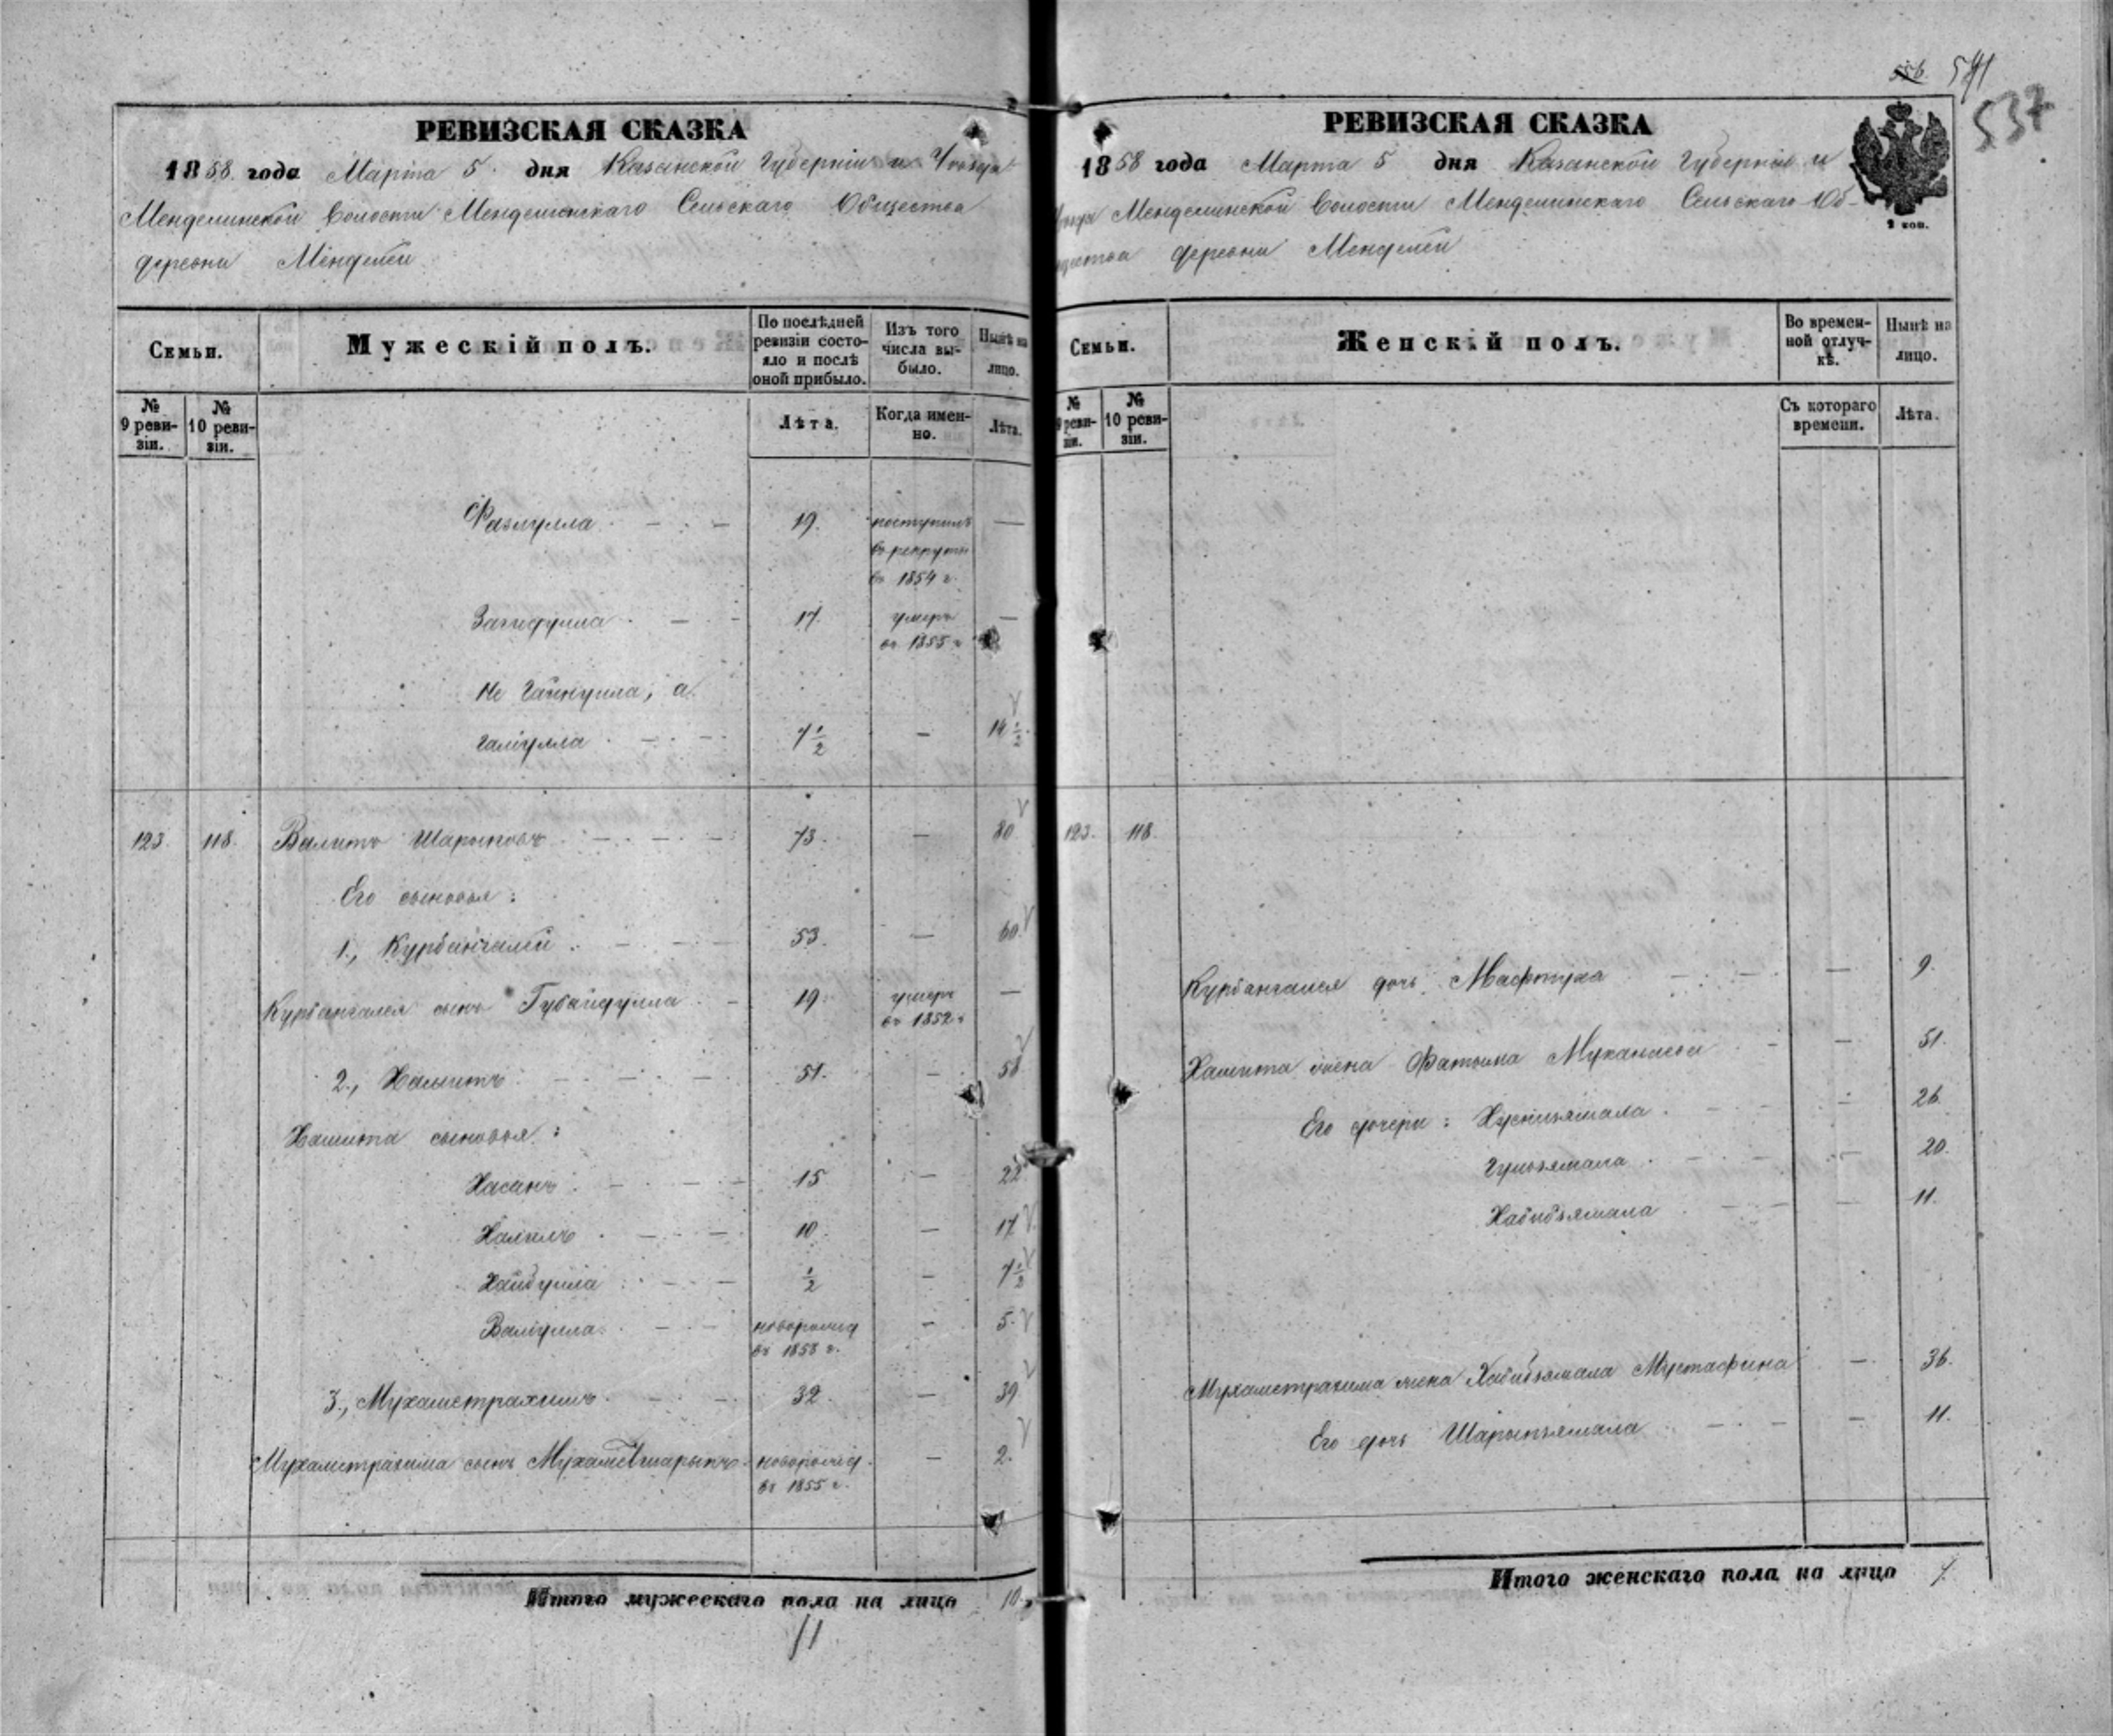 РЕВИЗСКАЯ СКАЗКА
1858 года Марта 5 дня Казанской Губерніи и Уѣзда
Менделинской Волости Менделинскаго Сельскаго Общества
деревни Менделей
Семьи.
Мужескій полъ.
По послѣдней ревизіи состояло и послѣ оной прибыло.
Изъ того числа выбыло.
Нынѣ на лицо.
№ 9 ревизіи.
№ 10 ревизіи.
Лѣта.
Когда именно.
Лѣта.
Фазлулла — 19. поступилъ —
въ рекруты
въ 1854 г.
Загидулла — 17. умеръ —
въ 1855 г.
Не Гайнулла, а
Галіулла — 7 1/2 — 14 1/2
123. 118. Валитъ Шарыповъ — 73. — 80
Его сыновья:
1., Курбангалей — 53. — 60.
Курбангалея сынъ Губайдулла — 19. умеръ —
въ 1852 г.
2., Хамитъ — 51. — 58
Хамита сыновья:
Хасанъ — 15 — 22
Халилъ — 10. — 17
Хайбулла — 1/2 — 7 1/2
Валіулла — новорожд — 5.
въ 1853 г.
3., Мухаметрахимъ — 32. — 39
Мухаметрахима сынъ Мухаметшарыпъ — новорожд. — 2.
въ 1855 г.
Итого мужескаго пола на лицо 10.
11
556 541
537
РЕВИЗСКАЯ СКАЗКА
1858 года Марта 5 дня Казанской Губерніи и
Уѣзда Менделинской Волости Менделинскаго Сельскаго Об-
щества деревни Менделей
2 коп.
Семьи.
Женскій полъ.
Во временной отлучкѣ.
Нынѣ на лицо.
№ 9 ревизіи.
№ 10 ревизіи.
Съ котораго времени.
Лѣта.
123. 118.
Курбангалея дочь Мафтуха — — 9.
Хамита жена Фатыма — — 51.
Его дочери: — — 26
Гульзямала — — 20.
Хабибзямала — — 11.
Мухаметрахима жена Хабибзямала Мустафина — 36.
Его дочь Шарыпзямала — — 11.
Итого женскаго пола на лицо 7.